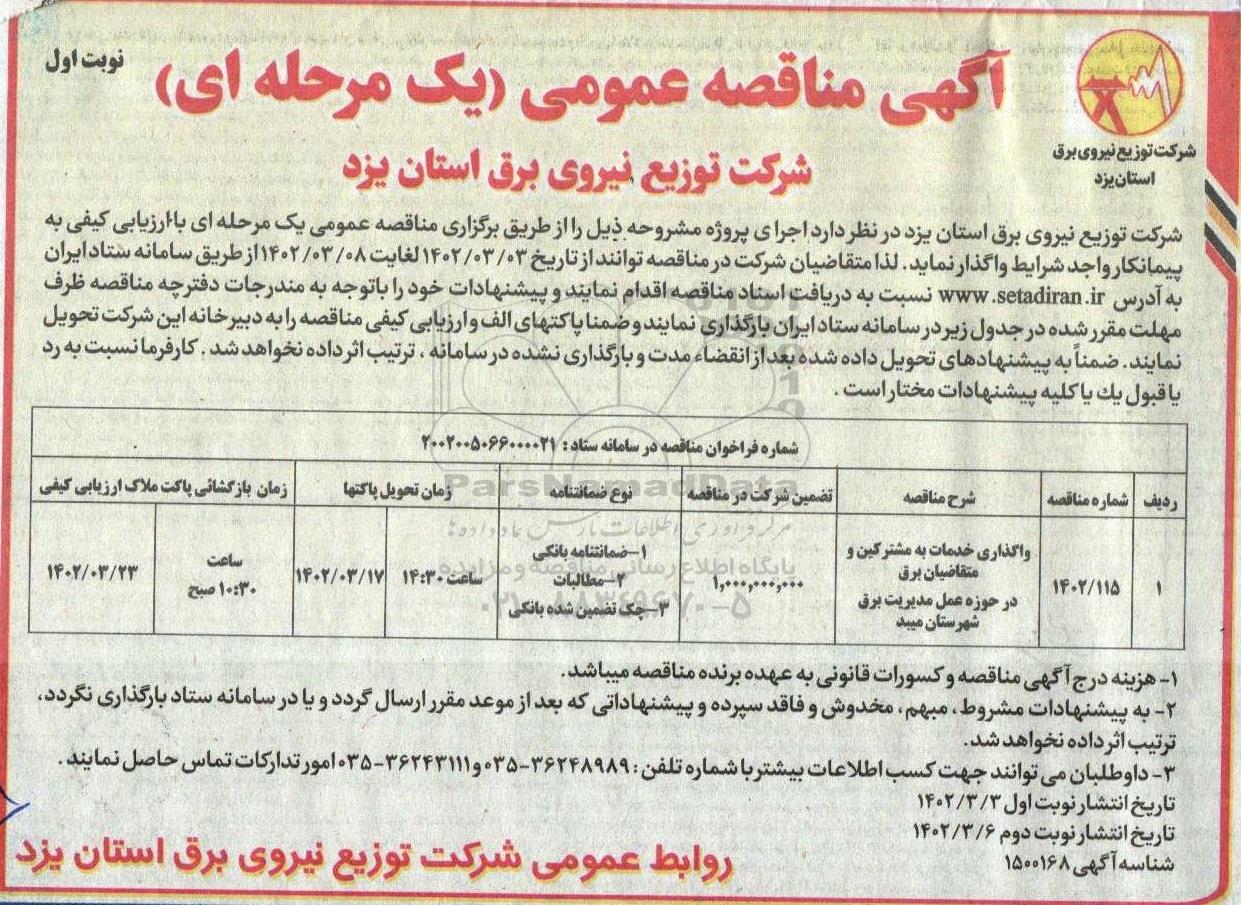 نوبت اول
آگهی مناقصه عمومی (یک مرحله ای)
شرکت توزیع نیروی برق استان یزد
شرکت توزیع نیروی برق
استان یزد
شرکت توزیع نیروی برق استان یزد در نظر دارد اجرای پروژه مشروحه ذیل را از طریق برگزاری مناقصه عمومی یک مرحله ای با ارزیابی کیفی به
پیمانکار واجد شرایط واگذار نماید. لذا متقاضیان شرکت در مناقصه توانند از تاریخ ۱۴۰۲/۰۳/۰۳ لغایت ۱۴۰۲/۰۳/۰۸ از طریق سامانه ستاد ایران
به آدرس www.setadiran.ir نسبت به دریافت اسناد مناقصه اقدام نمایند و پیشنهادات خود را باتوجه به مندرجات دفترچه مناقصه ظرف
مهلت مقرر شده در جدول زیر در سامانه ستاد ایران بارگذاری نمایند و ضمنا پاکتهای الف و ارزیابی کیفی مناقصه را به دبیرخانه این شرکت تحویل
نمایند. ضمناً به پیشنهادهای تحویل داده شده بعد از انقضاء مدت و بارگذاری نشده در سامانه ، ترتیب اثر داده نخواهد شد . کارفرما نسبت به رد
یا قبول یك یا کلیه پیشنهادات مختار است .
شماره فراخوان مناقصه در سامانه ستاد : ۲۰۰۲۰۰۵۰۶۶۰۰۰۰۲۱
ردیف شماره مناقصه شرح مناقصه تضمین شرکت در مناقصه نوع ضمانتنامه زمان تحویل پاکتها زمان بازگشائی پاکت ملاک ارزیابی کیفی
۱ ۱۴۰۲/۱۱۵
واگذاری خدمات به مشترکین و
متقاضیان برق
در حوزه عمل مدیریت برق
شهرستان میبد
۱,۰۰۰,۰۰۰,۰۰۰
۱-ضمانتنامه بانکی
۲-مطالبات
۳-چک تضمین شده بانکی
ساعت ۱۴:۳۰ ۱۴۰۲/۰۳/۱۷
ساعت
۱۰:۳۰ صبح
۱۴۰۲/۰۳/۲۳
ParsNamadData
پایگاه اطلاع رسانی مناقصه و مزایده
۰۲۱-۸۸۳۴۹۶۷۰-۵
۱- هزینه درج آگهی مناقصه و کسورات قانونی به عهده برنده مناقصه میباشد.
۲- به پیشنهادات مشروط، مبهم، مخدوش و فاقد سپرده و پیشنهاداتی که بعد از موعد مقرر ارسال گردد و یا در سامانه ستاد بارگذاری نگردد،
ترتیب اثر داده نخواهد شد.
۳- داوطلبان می توانند جهت کسب اطلاعات بیشتر با شماره تلفن : ۳۶۲۴۸۹۸۹-۰۳۵ و ۳۶۲۴۳۱۱۱-۰۳۵ امور تدارکات تماس حاصل نمایند .
تاریخ انتشار نوبت اول ۱۴۰۲/۳/۳
تاریخ انتشار نوبت دوم ۱۴۰۲/۳/۶
شناسه آگهی ۱۵۰۰۱۶۸
روابط عمومی شرکت توزیع نیروی برق استان یزد